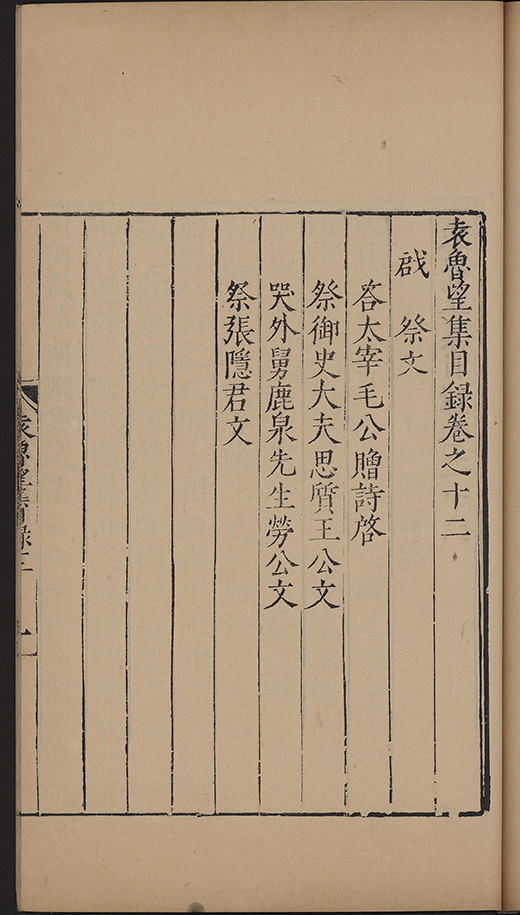 袁魯望集目録卷之十二
啟　祭文
答太宰毛公贈詩啓
祭御史大夫思質王公文
哭外舅鹿泉先生勞公文
祭張隱君文
袁魯望集目録